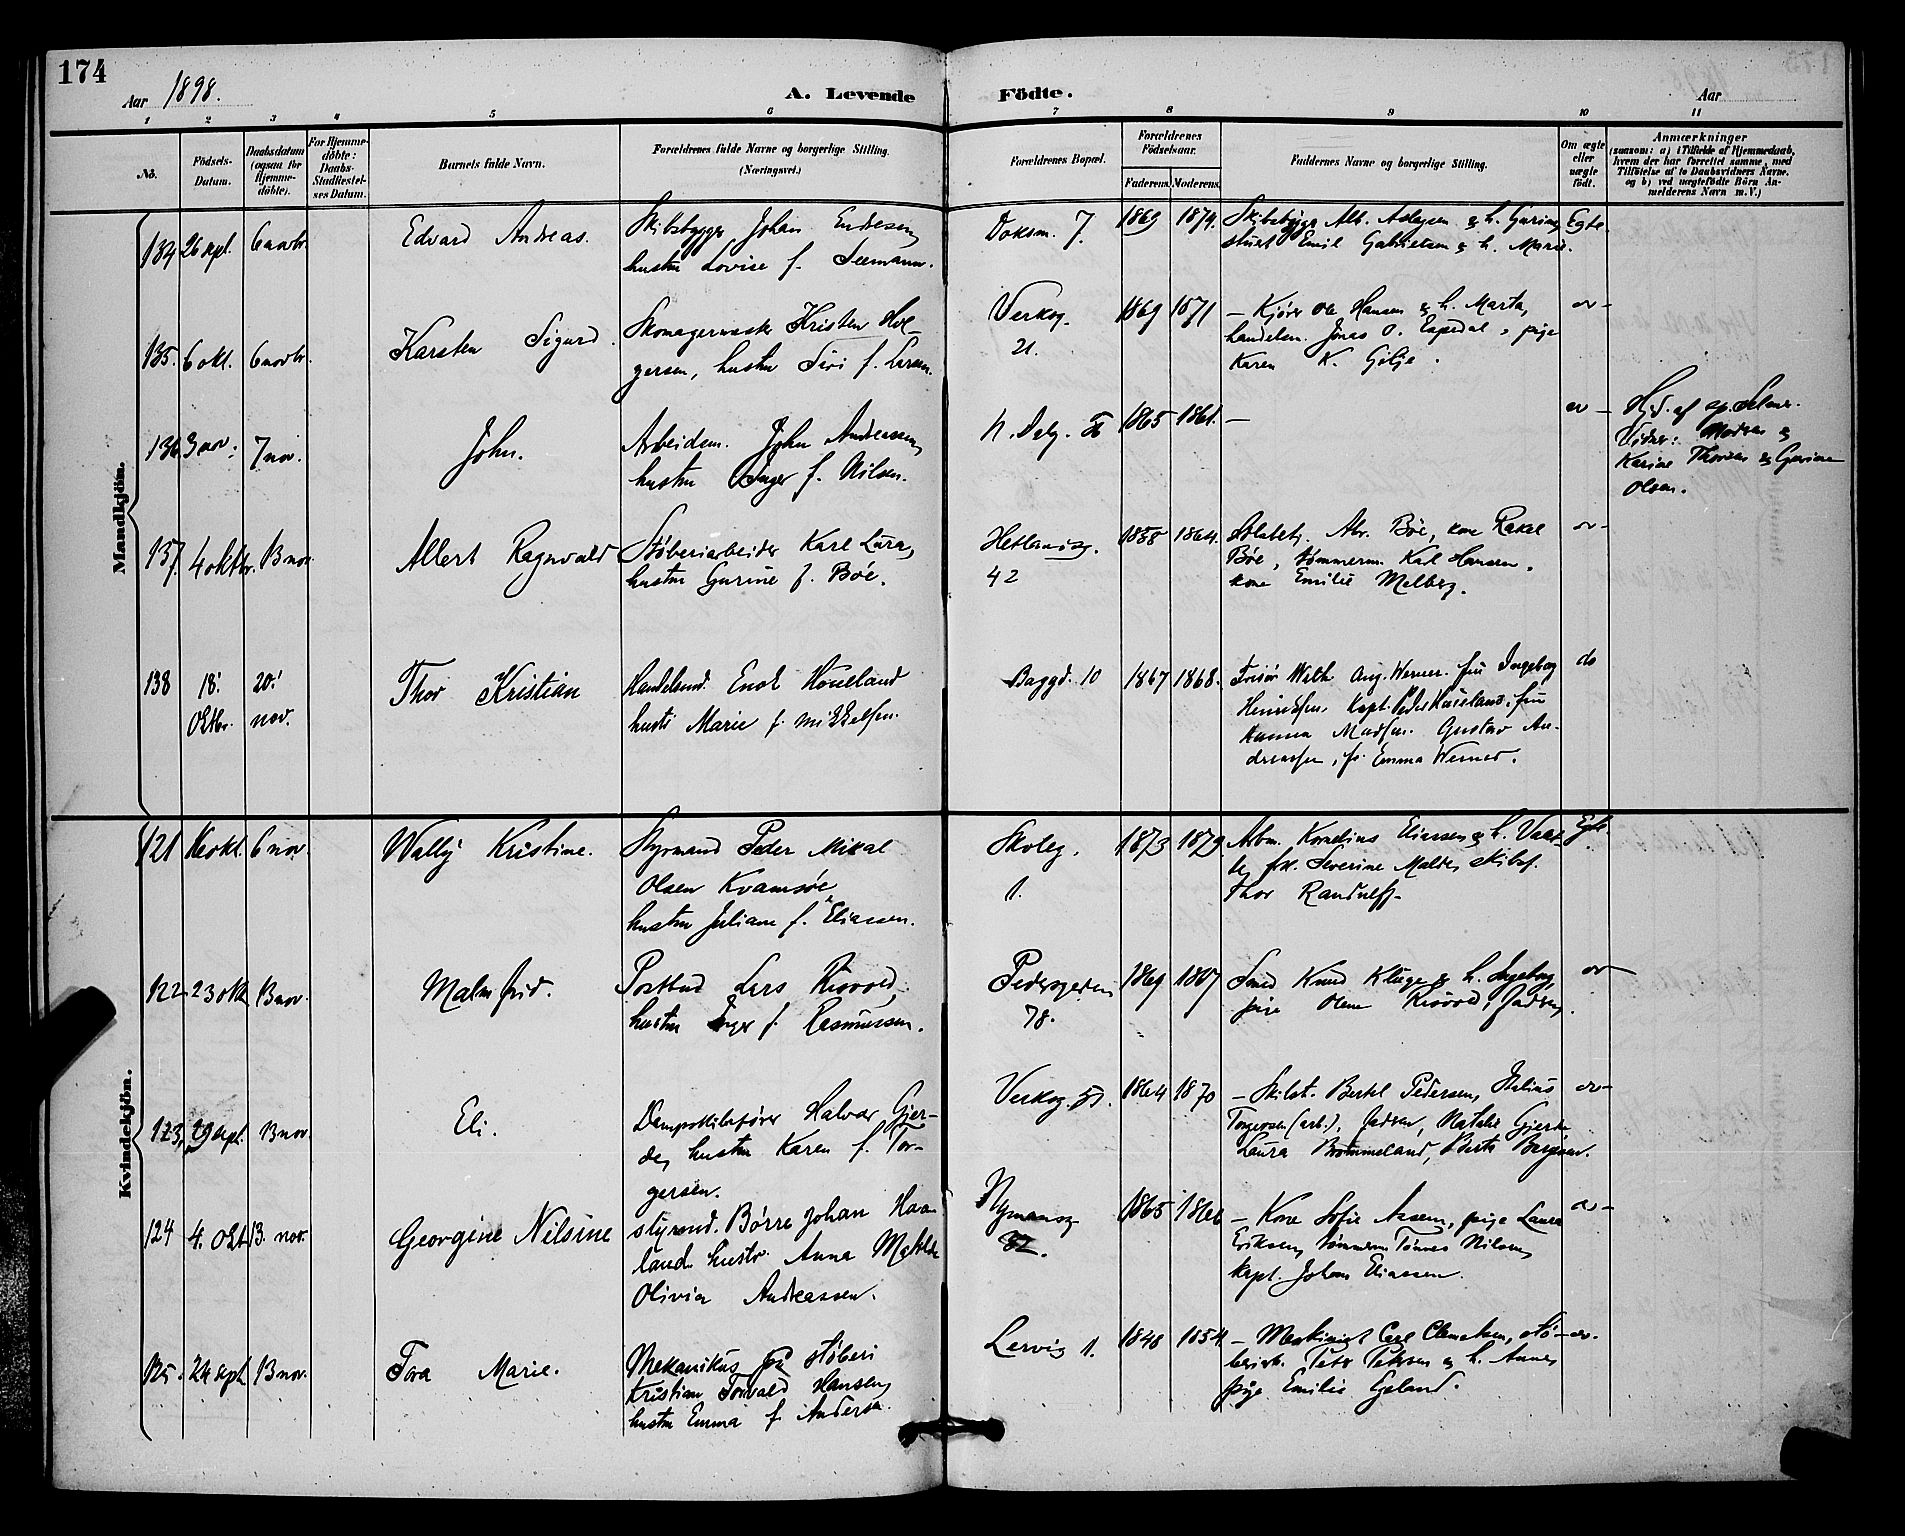 174
Aar 1898.
A. Levende
Födte.
Aar
1 2 3 4 5 6 7 8 9 10 11
No.
Födsels-
Datum.
Daabsdatum
(ogsaa for
Hjemme-
döbte).
For Hjemme-
döbte:
Daabs-
Stadfæstel-
ses Datum.
Barnets fulde Navn.
Forældrenes fulde Navne og borgerlige Stilling.
(Næringsvei.)
Forældrenes Bopæl.
Forældrenes
Födselsaar.
Faderens. Moderens.
Faddernes Navne og borgerlige Stilling.
Om ægte
eller
uægte
födt.
Anmærkninger
(saasom: a) i Tilfælde af Hjemmedaab,
hvem der har forrettet samme, med
Tilföielse af to Daabsvidners Navne,
og b) ved uægtefödte Börn An-
melderens Navn m. V.)
Mandkjön.
134 26 sept. 6 novbr. Edvard Andreas.
Skibsbygger Johan Endresen,
hustru Lovise f. Seemann.
Doksm. 7. 1869 1874.
Skibsbygg. Alb. Aslagsen & h. Gurine,
stuert Emil Gabrielsen & h. Marie.
Egte.
135. 6 okt. 6 novbr. Karsten Sigurd.
Skomagermester Kristen Hol-
gersen, hustru Siri f. Larsen.
Verksg.
21.
1869 1871
– Kjører Ole Hansen & h. Marta,
handelsm. Jonas O. Espedal, pige
Karen K. Gilje.
136 3 nov. 7 nov. John.
Arbeidsm. John Andreassen,
hustru Inger f. Nilsen.
1865 1861. –
Hjd. af sp. Selmer.
Vidner: Madsen &
Karine Thorsen & Gurine
Olsen.
137. 4 oktbr. 13 nov. Albert Ragnvald
Støberiarbeider Karl Lura,
hustru Gurine f. Bøe.
Hetlandsg.
42
1858 1864.
Abr. Bøe, kone Rakel
Bøe, tømmerm. Karl Hansen,
kone Emilie Melberg.
138 18. Oktbr. 20. nov. Thor Kristian
Handelsmd. Enok Houeland
hustr. Marie f. Mikkelsen.
Baggd. 10 1867 1868.
Frisør Wilh. Aug. Werner. fru Ingeborg
Henriksen. Kapt. Peder Houeland, fru
Hanna Madsen. Gustav An-
dreassen, fr. Emma Werner.
do
Kvindekjön.
121 16 okt. 6 nov. Wally Kristine.
Styrmand Peder Mikal
Olsen Kvamsøe,
hustru Juliane f. Eliassen.
Skoleg.
1.
1873 1879.
Arbm. Kornelius Eliassen & h.
frk. Severine Malde, skibsf.
Thor Randulff.
Egte.
122. 23 okt. 13 nov. Malmfrid.
Postbud Lars Risvold,
hustru Inger f. Rasmussen.
Pedersgaden
78.
1869 1867
Smed Knud Kluge & h. Ingeborg,
pige Olene Risvold, Jadren.
123, 29 sept. 13 nov. Eli.
Dampskibsfører Halvor Gjer-
de, hustru Karen f. Tor-
gersen.
Verksg. 51. 1864 1870
– Skibst. Bertel Pedersen, Julius
Torgersen (arb.), Jadren, Natalie Gjerde
Laura Brommeland, Berte Bergsen.
124 4. Okt. 13. nov. Georgine Nilsine
styrmd. Børre Johan Haa-
land. hustr. Anna Matilde
Olivia Andreassen.
Nymansg.
32.
1865 1866
– Kone Sofie Aasen, pige Laura
Eriksen, tømmerm. Tønnes Nilsen,
kapt. Johan Eliassen.
125. 24 sept. 13 nov. Tora Marie.
Mekanikus på støberi
Kristian Torvald Hansen,
hustru Emma f. Andersen.
Lervig 1. 1848 1854.
– Maskinist Carl Clemetsen, stø-
beriarb. Peter Petersen & h. Anne,
pige Emilie Egeland.